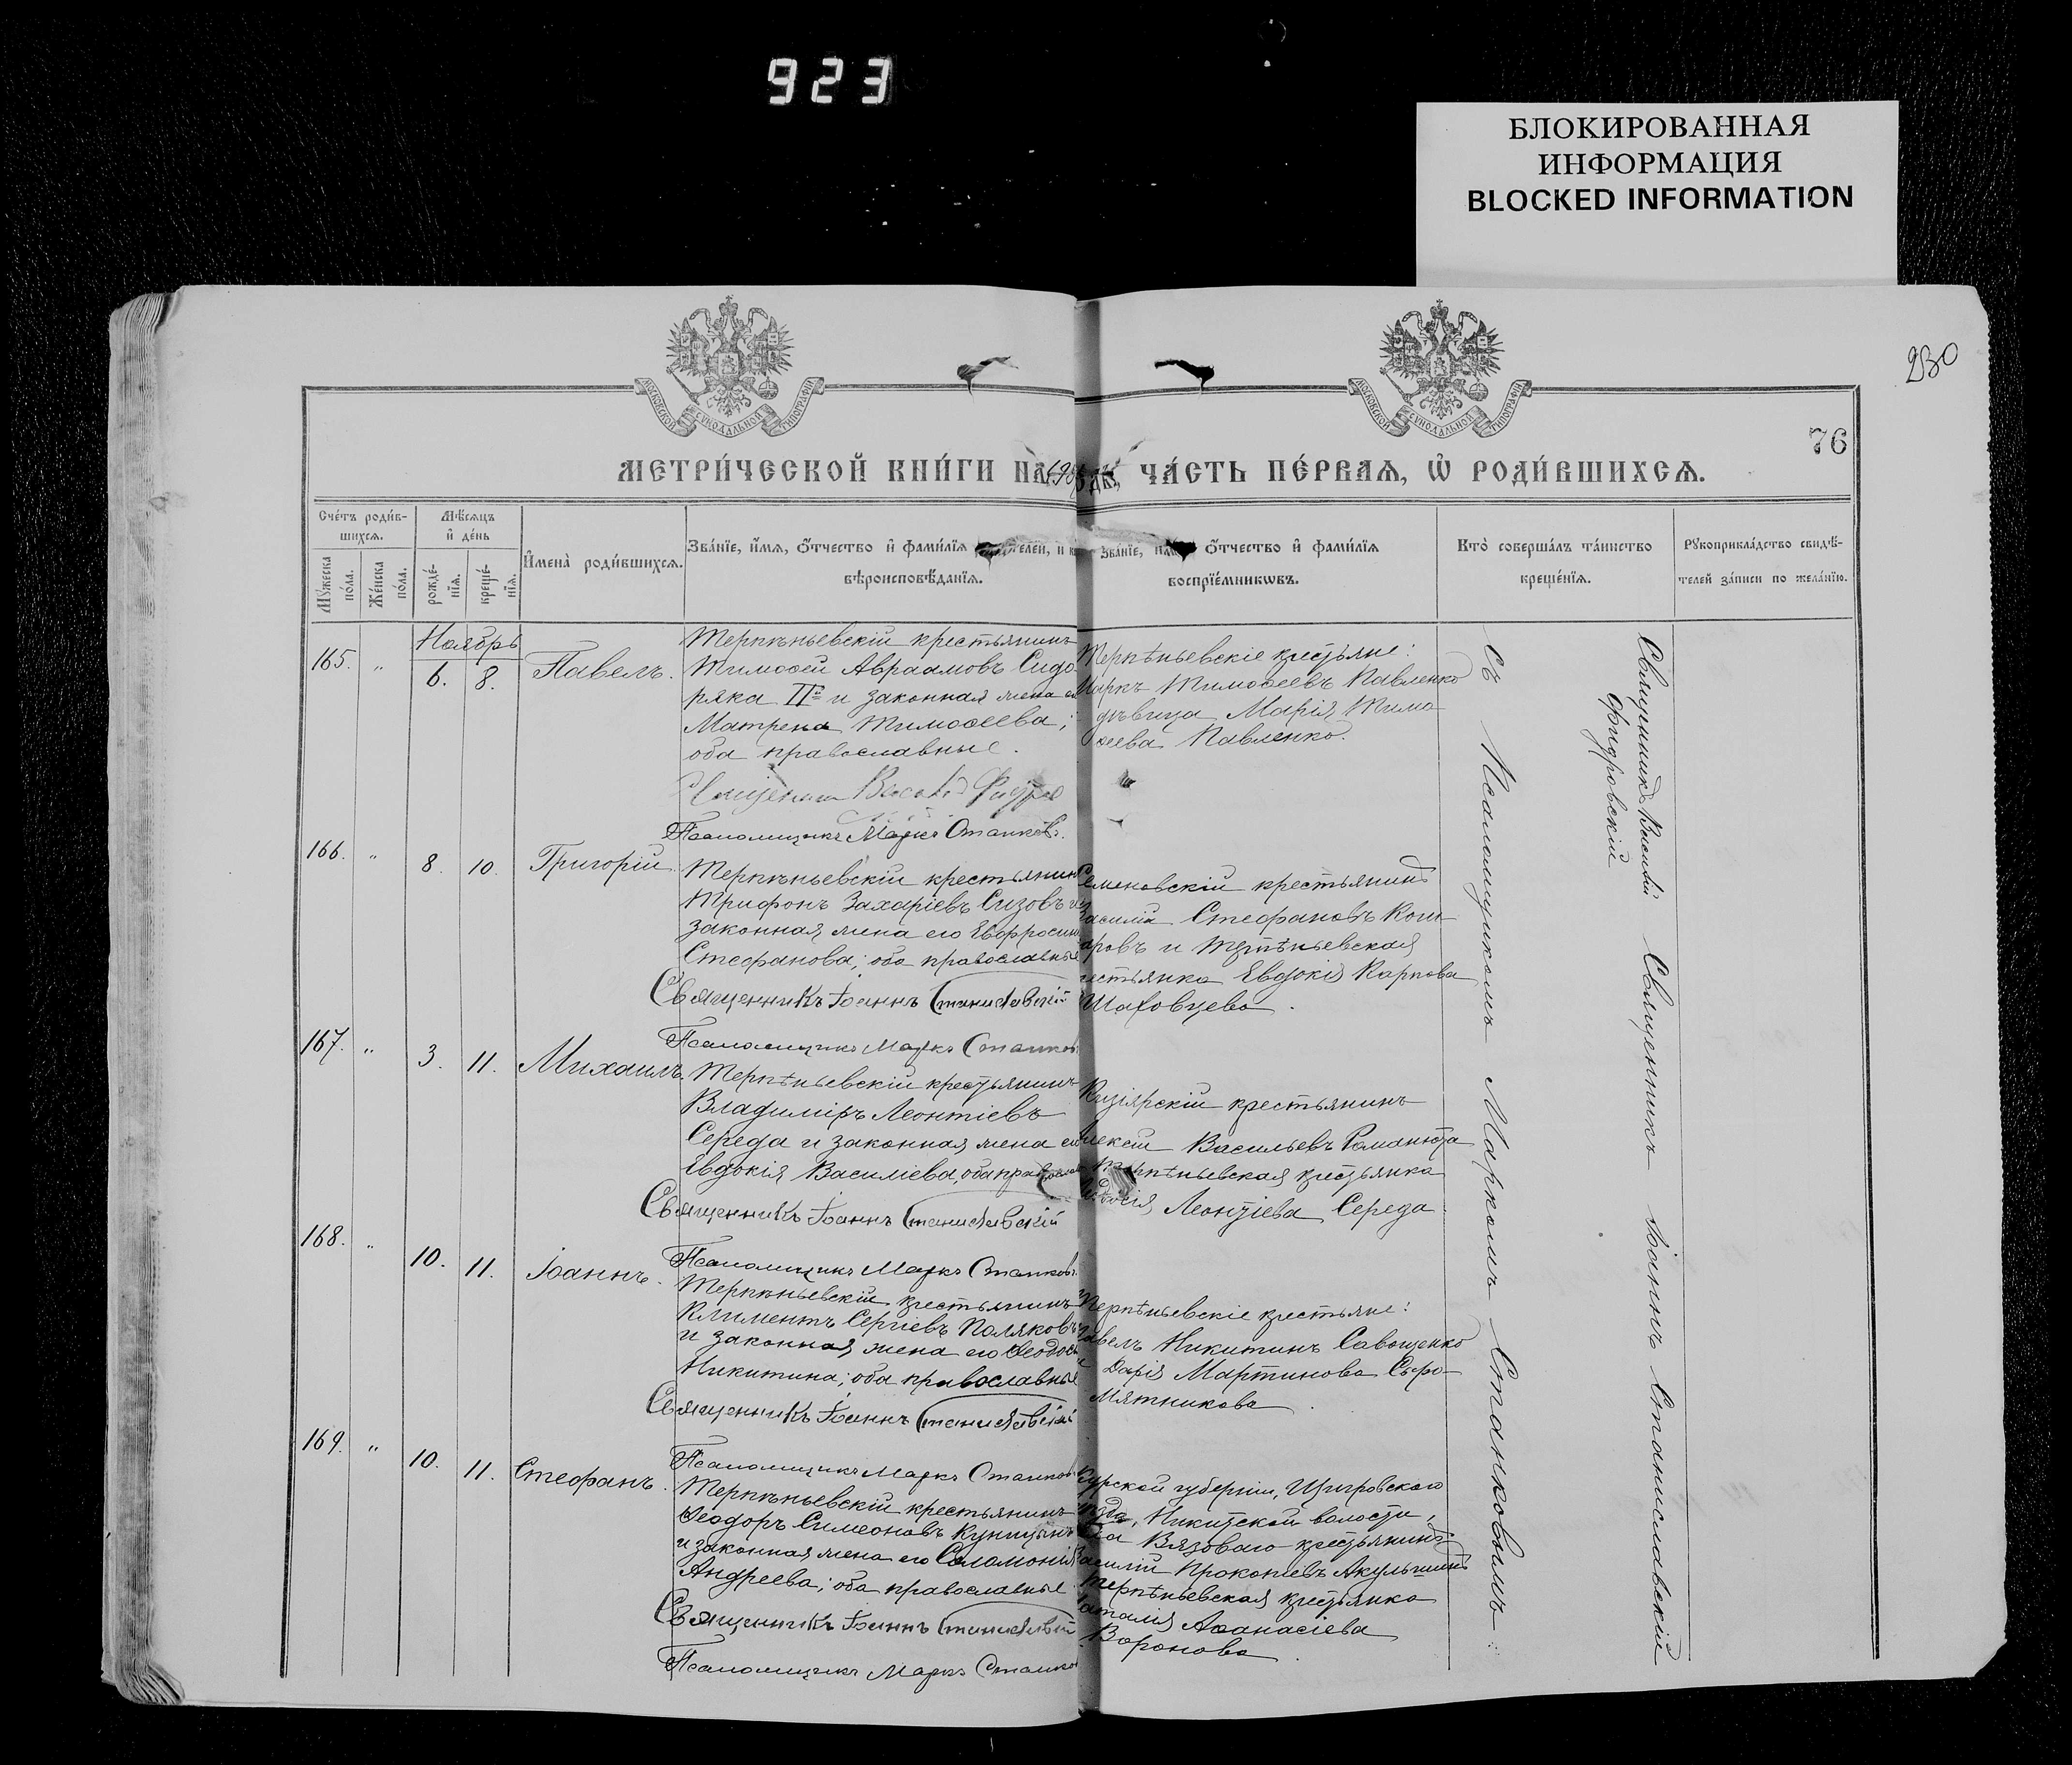 923
БЛОКИРОВАННАЯ
ИНФОРМАЦИЯ
BLOCKED INFORMATION
230
76
МОСКОВСКОЙ СУНОДАЛЬНОЙ ТИПОГРАФІИ
МОСКОВСКОЙ СУНОДАЛЬНОЙ ТИПОГРАФІИ
МЕТРИ́ЧЕСКОЙ КНИ́ГИ НА ЧА́СТЬ ПЕ́РВАЯ, Ѡ РОДИ́ВШИХСЯ.
Сче́тъ роди́в-
шихся.
Мꙋ́жеска по́ла.
Же́нска по́ла.
Мѣ́сяцъ
и де́нь
рожде́-
нїя.
креще́-
нїя.
И҆мена̀ роди́вшихся.
Зва́нїе, и҆́мя, ѻ҆́тчество и҆ фами́лїя
вѣроисповѣ́данїя.
Зва́нїе, ѻ҆́тчество и҆ фами́лїя
воспрїе́мникѡвъ.
Кто̀ соверша́лъ та́инство
креще́нїя.
Рꙋкоприкла́дство свидѣ́-
телей за́писи по жела́нїю.
Ноябрь
165. " 6. 8. Павелъ.
Терпѣньевскій крестьянинъ
Тимоѳей Авраамовъ Сидо-
ряка IIй и законная жена его
Матрена Тимоѳеева;
оба православные.
Псаломщикъ Маркъ Станковъ.
Терпѣньевскіе крестьяне:
Маркъ Тимоѳеевъ Павленко
дѣвица Марія Тимо-
ѳеева Павленко.
166. " 8. 10. Григорій
Терпѣньевскій крестьянинъ
Трифонъ Захаріевъ Сизовъ и
законная жена его Евфросинія
Стефанова; оба православные
Священникъ Іоаннъ Станиславскій
Псаломщикъ Маркъ Станковъ
Семеновскій крестьянинъ
Василій Стефановъ Кош-
аровъ и Терпѣньевская
крестьянка Евдокія Карпова
Шаховцева.
167. " 3. 11. Михаилъ.
Терпѣньевскій крестьянинъ
Владиміръ Леонтіевъ
Середа и законная жена его
Евдокія Василіева, оба православные
Священникъ Іоаннъ Станиславскій
Псаломщикъ Маркъ Станковъ.
Кизіярскій крестьянинъ
Алексій Васильевъ Романюта
Терпѣньевская крестьянка
Леонтіева Середа
168. " 10. 11. Іоаннъ.
Терпѣньевскій крестьянинъ
Климентъ Сергіевъ Поляковъ
и законная жена его Ѳеодосія
Никитина; оба православные
Священникъ Іоаннъ Станиславскій
Псаломщикъ Маркъ Станковъ
Терпѣньевскіе крестьяне:
Павелъ Никитинъ Савощенко
и Дарія Мартинова Сыро-
мятникова.
169. " 10. 11. Стефанъ.
Терпѣньевскій крестьянинъ
Ѳеодоръ Симеоновъ Куницынъ
и законная жена его Соломонія
Андреева; оба православные
Священникъ Іоаннъ Станиславскій
Псаломщикъ Маркъ Станковъ
Курской губерніи, Щигровского
уѣзда, Никитской волости,
села Вязоваго крестьянинъ
Василій Прокопіевъ Акульшинъ
Терпѣньевская крестьянка
Наталія Аѳанасіева
Воронова.
Священникъ Василій
Фидровскій
Священникъ Іоаннъ Станиславскій
Съ Псаломщикомъ Маркомъ Станковымъ.